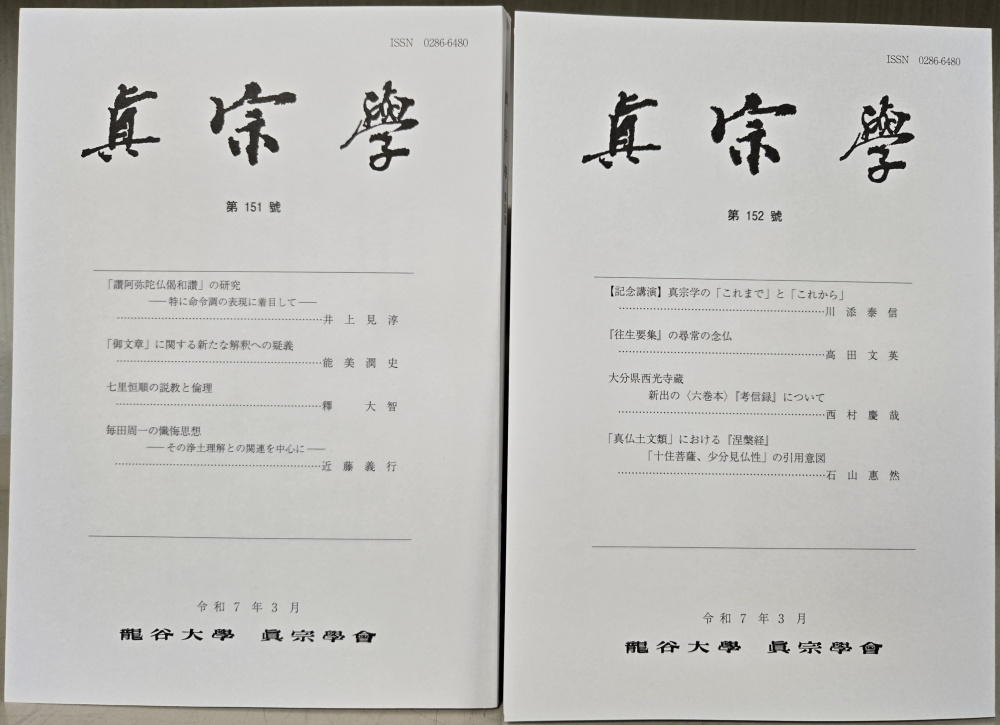 ISSN 0286-6480
眞宗學
第 151 號
「讃阿弥陀仏偈和讃」の研究
――特に命令調の表現に着目して――
……………………………………………井上見淳
「御文章」に関する新たな解釈への疑義
……………………………………………能美潤史
七里恒順の説教と倫理
……………………………………………釋大智
毎田周一の懺悔思想
――その浄土理解との関連を中心に――
……………………………………………近藤義行
令和7年3月
龍谷大學 眞宗學會
ISSN 0286-6480
眞宗學
第 152 號
【記念講演】真宗学の「これまで」と「これから」
……………………………………………川添泰信
『往生要集』の尋常の念仏
……………………………………………高田文英
大分県西光寺蔵
新出の〈六巻本〉『考信録』について
……………………………………………西村慶哉
「真仏土文類」における『涅槃経』
「十住菩薩、少分見仏性」の引用意図
……………………………………………石山惠然
令和7年3月
龍谷大學 眞宗學會